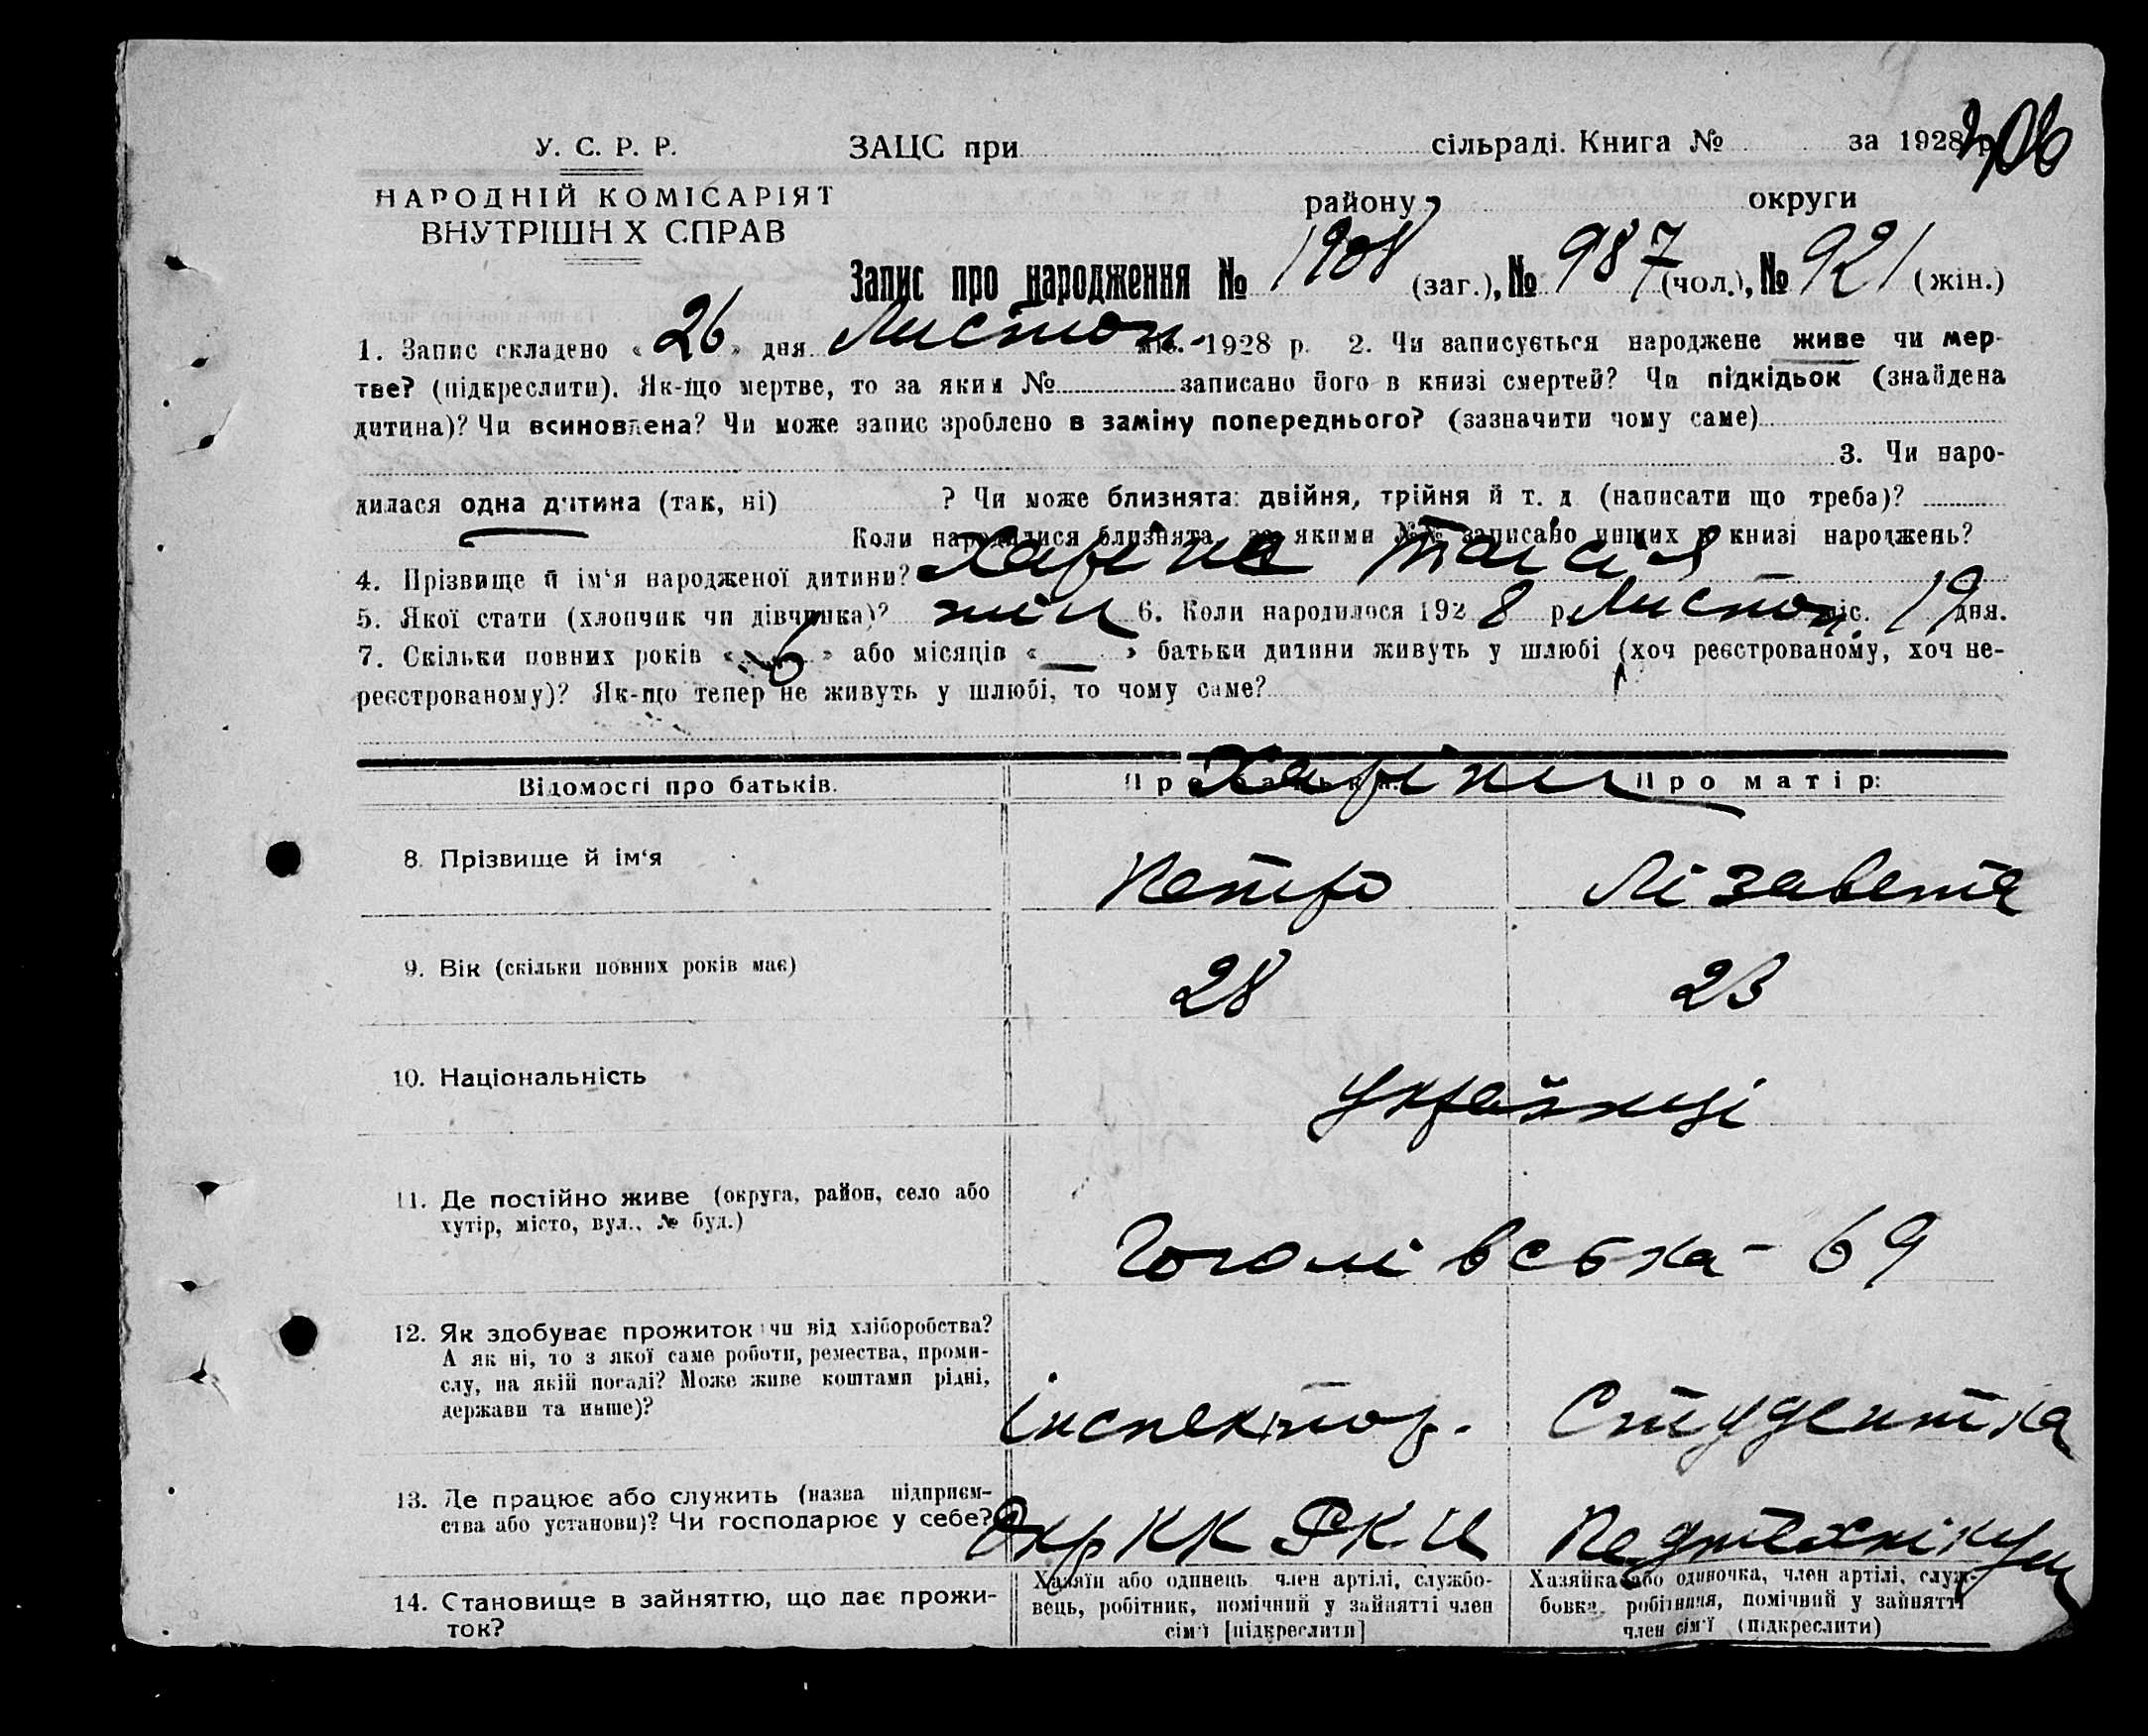 406
У. С. Р. Р.
ЗАЦС при сільраді. Книга № за 1928 р.
НАРОДНІЙ КОМІСАРІЯТ
району округи
ВНУТРІШН Х СПРАВ
Запис про народження № 1908 (заг.), № 987 (чол.), № 921 (жін.)
1. Запис складено «26» дня Листоп. міс. 1928 р. 2. Чи записується народжене живе чи мер-
тве? (підкреслити). Як-що мертве, то за яким № записано його в книзі смертей? Чи підкідьок (знайдена
дитина)? Чи всиновлена? Чи може запис зроблено в заміну попереднього? (зазначити чому саме)
3. Чи наро-
дилася одна дитина (так, ні) ? Чи може близнята: двійня, трійня й т. д (написати що треба)?
Коли народилися близнята, за якими №№ записано инших в книзі народжень?
4. Прізвище й ім‘я народженої дитини? Харіна Таісія
5. Якої стати (хлопчик чи дівчинка)? жін 6. Коли народилося 1928 р. Листоп. міс. 19 дня.
7. Скільки повних років «6» або місяців «—» батьки дитини живуть у шлюбі (хоч реєстрованому, хоч не-
реєстрованому)? Як-що тепер не живуть у шлюбі, то чому саме?
Відомості про батьків. Про батька: Про матір:
Харіни
8. Прізвище й ім‘я Петро Лізавета
9. Вік (скільки повних років має) 28 23
10. Національність Українці
11. Де постійно живе (округа, район, село або
хутір, місто, вул., № буд.)
Гоголівська - 69
12. Як здобуває прожиток чи від хліборобства?
А як ні, то з якої саме роботи, ремества, проми-
слу, на якій посаді? Може живе коштами рідні,
держави та инше)?
інспектор. Студентка
13. Де працює або служить (назва підприєм-
ства або установи)? Чи господарює у себе?
Окр КК РКИ Педтехнікум
14. Становище в зайняттю, що дає прожи-
ток?
Хазяїн або одинець член артілі, службо-
вець, робітник, помічний у зайнятті член
сім‘ї [підкреслити]
Хазяйка або одиночка, член артілі, служ-
бовка, робітниця, помічний у зайнятті
член сім‘ї (підкреслити)